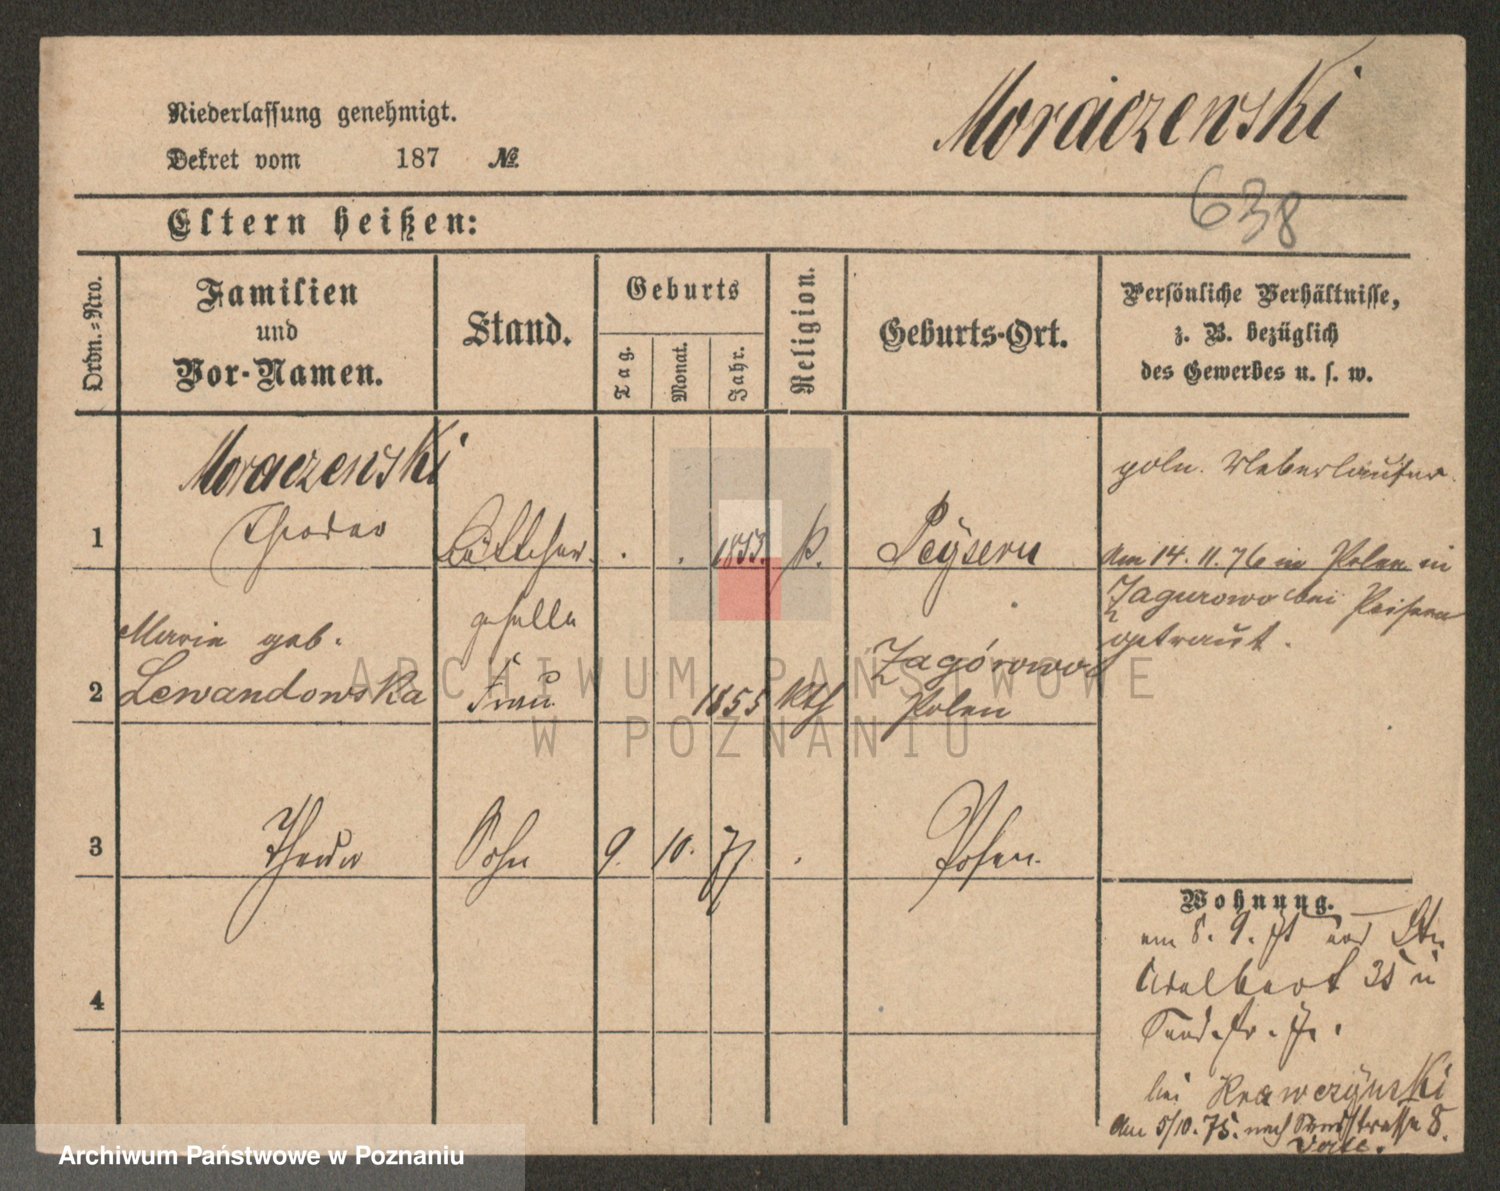 Niederlassung genehmigt.
Dekret vom 187 №
Moraczewski
638
Eltern heißen:
Ordn.=Nro.
Familien
und
Vor-Namen.
Stand.
Geburts
Tag.
Monat.
Jahr.
Religion.
Geburts-Ort.
Persönliche Verhältnisse,
z. B. bezüglich
des Gewerbes u. s. w.
Moraczewski
poln. Ueberläufer.
1 Theodor Böttcher 1853. k. Peysern
geselle
am 14. 11. 76 in Polen in
Zagurowo bei Peisern
getraut.
Marie geb.
2 Lewandowska Frau 1855 kth Zagórowo
Polen
3 Theodor Sohn 9. 10. 77. Posen.
4
Wohnung.
am 8. 9. St.
Adalbert 35 u
bei Krawczynski
am 5/10. 75. nach Sandstrasse 8.
ARCHIWUM PAŃSTWOWE
W POZNANIU
Archiwum Państwowe w Poznaniu